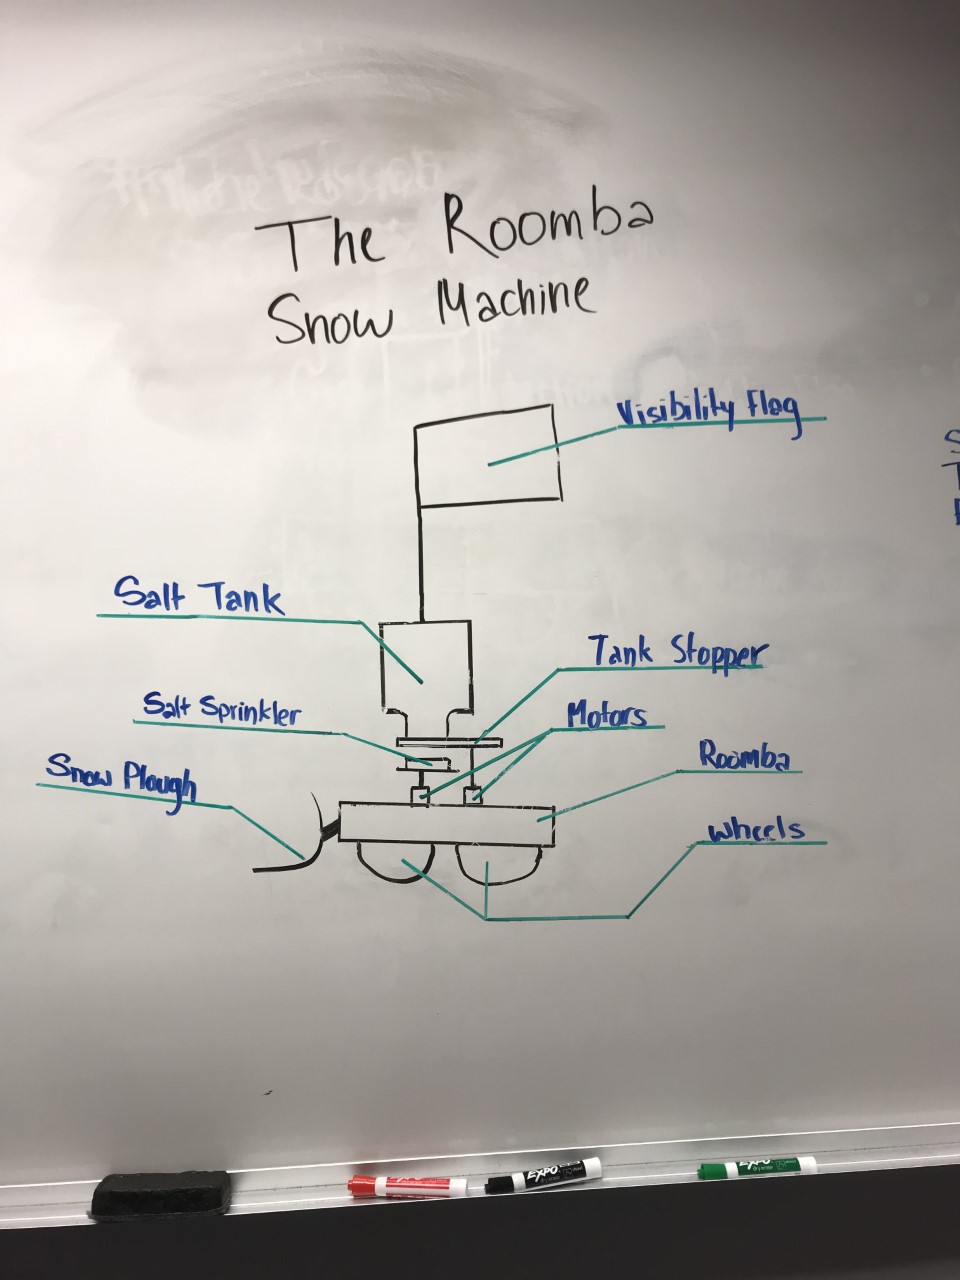 The Roomba
Snow Machine
Visibility Flag
Salt Tank
Tank Stopper
Salt Sprinkler
Motors
Snow Plough
Roomba
Wheels
S
T
EXPO
EXPO